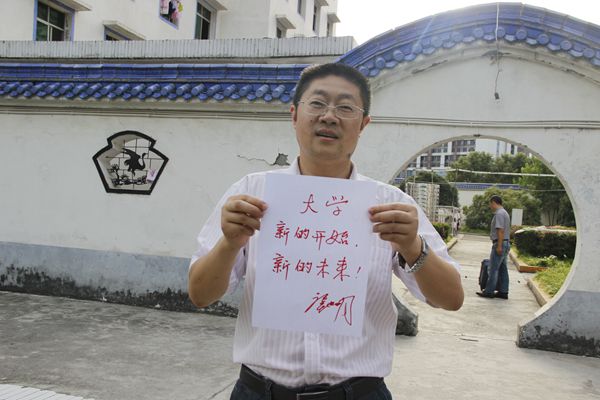 大学
新的开始，
新的未来！